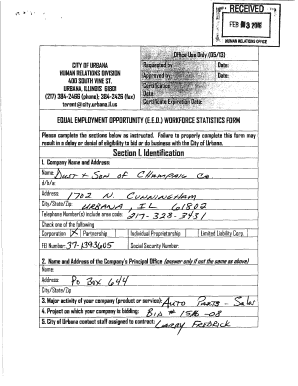 RECEIVED
FEB 03 2016
HUMAN RELATIONS OFFICE
CITY OF URBANA
HUMAN RELATIONS DIVISION
400 SOUTH VINE ST.
URBANA, ILLINOIS 61801
(217) 384-2466 (phone); 384-2426 (fax)
Office Use Only (05/13)
Requested by Date:
Approved by Date:
Certification
Date:
Certificate Expiration Date:
EQUAL EMPLOYMENT OPPORTUNITY (E.E.O.) WORKFORCE STATISTICS FORM
Please complete the sections below as instructed. Failure to properly complete this form may
result in a delay or denial of eligibility to bid or do business with the City of Urbana.
Section I. Identification
1. Company Name and Address:
Name: Dust & Son OF Champaig Co.
d/b/a:
Address: 1702 N. CUNNINGHAM
City/State/Zip: URBANA, IL 61802
Telephone Number(s) include area code: 217-328-3431
Check one of the following
Corporation X Partnership Individual Proprietorship Limited Liability Corp.
FEI Number: 37-1393605 Social Security Number:
2. Name and Address of the Company's Principal Office (answer only if not the same as above)
Name:
Address: Po Box 644
City/State/Zip
3. Major activity of your company (product or service): Auto Parts - Sales
4. Project on which your company is bidding: Bid # 1516-08
5. City of Urbana contact staff assigned to contract: Larry Fredrick